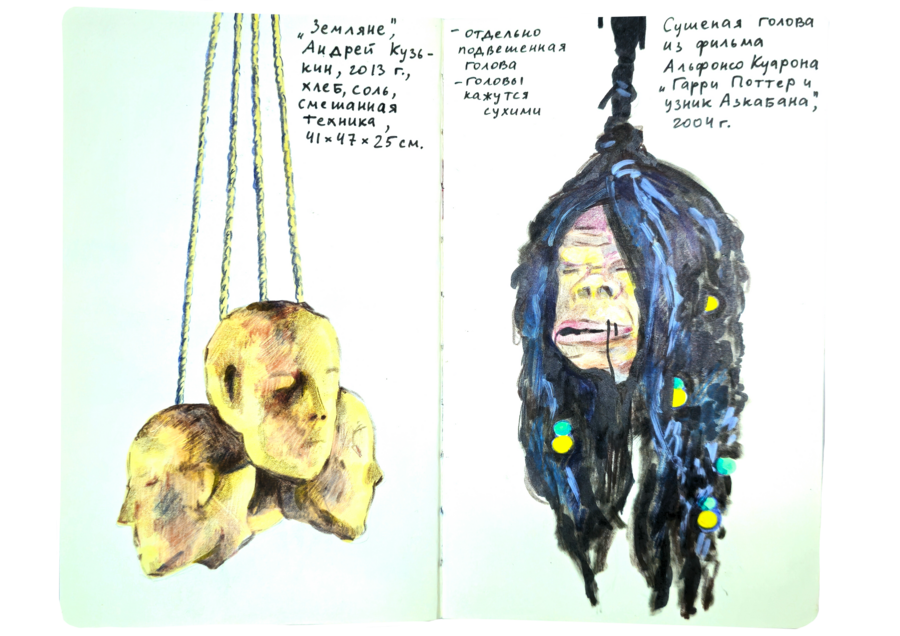 „Земляне",
Андрей Кузь-
кин, 2013 г.,
хлеб, соль,
смешанная
техника,
41 × 47 × 25 см.
- отдельно
подвешенная
голова
- головы
кажутся
сухими
Сушеная голова
из фильма
Альфонсо Куарона
„Гарри Поттер и
узник Азкабана",
2004 г.